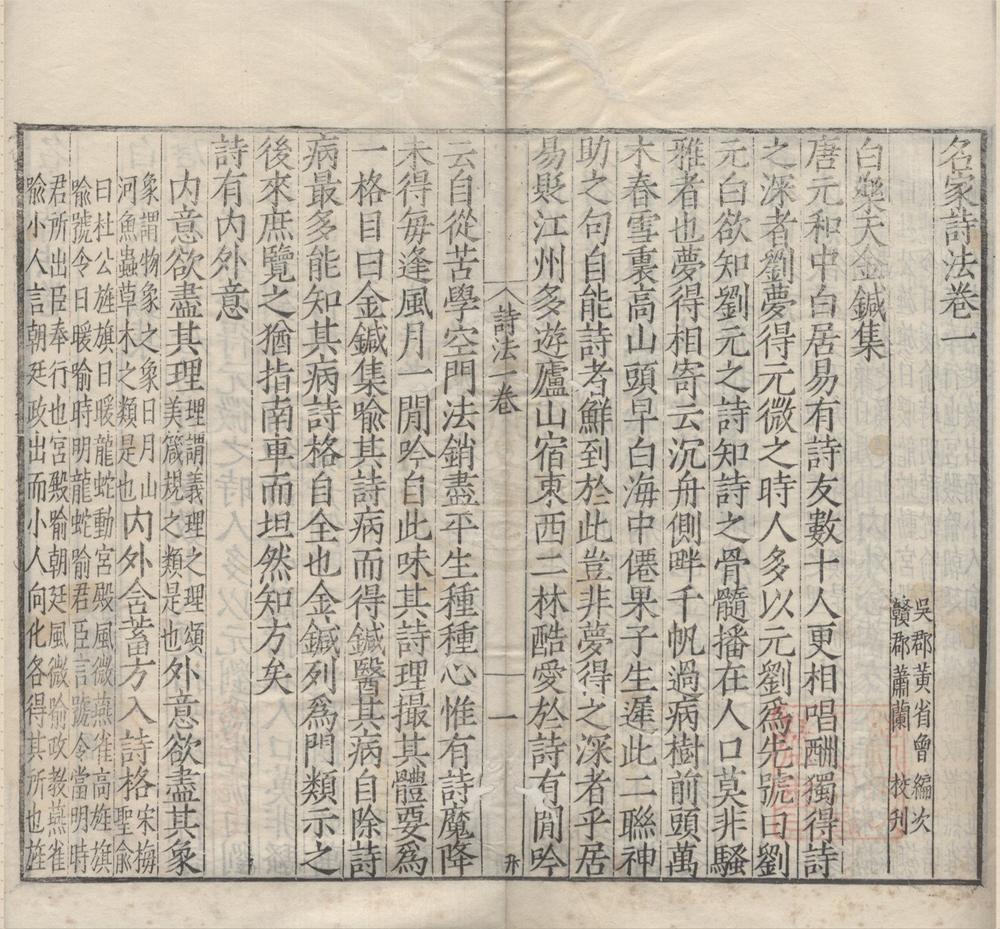 名家詩法卷一
吳郡黃省曾編次
贛郡蕭蘭校刊
白樂天金鍼集
唐元和中白居易有詩友數十人更相唱酬獨得詩
之深者劉夢得元微之時人多以元劉爲先號曰劉
元白欲知劉元之詩知詩之骨髓播在人口莫非騷
雅者也夢得相寄云沉舟側畔千帆過病樹前頭萬
木春雪裏高山頭早白海中僊果子生遲此二聯神
助之句自能詩者鮮到於此豈非夢得之深者乎居
易貶江州多遊廬山宿東西二林酷愛於詩有閒吟
詩法一卷
一
云自從苦學空門法銷盡平生種種心惟有詩魔降
未得每逢風月一閒吟自此味其詩理撮其體要爲
一格目曰金鍼集喻其詩病而得鍼醫其病自除詩
病最多能知其病詩格自全也金鍼列爲門類示之
後來庶覽之猶指南車而坦然知方矣
詩有內外意
內意欲盡其理理謂義理之理頌
美箴規之類是也外意欲盡其象
象謂物象之象日月山
河魚蟲草木之類是也內外含蓄方入詩格聖俞宋梅
曰杜公旌旗日暖龍蛇動宮殿風微燕雀高旌旗
喻號令日暖喻時明龍蛇喻君臣言號令當明時
君所出臣奉行也宮殿喻朝廷風微喻政教燕雀
喻小人言朝廷政出而小人向化各得其所也旌